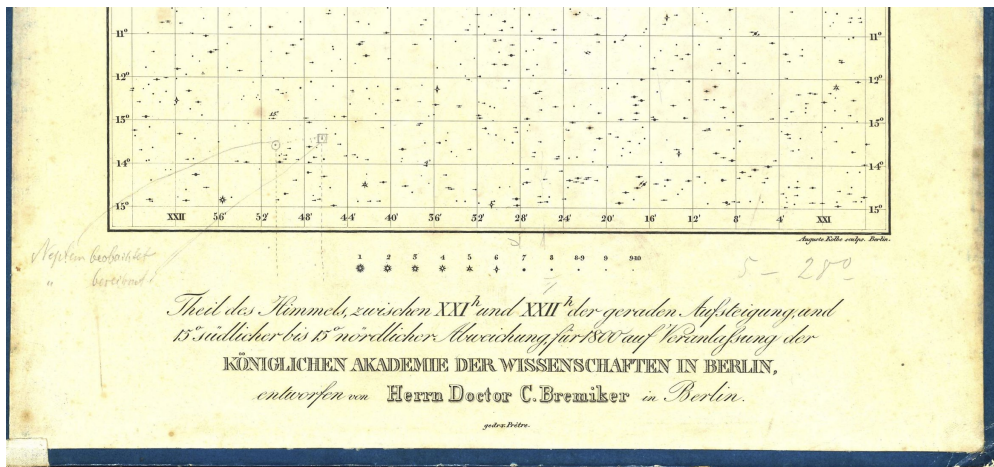 11° 11°
12° 12°
15° 15°
15'
14° 14°
15° 15°
XXII 56' 52' 48' 44' 40' 36' 32' 28' 24' 20' 16' 12' 8' 4' XXI
Auguste Kolbe sculps. Berlin.
Neptun beobachtet
" berechnet
5 – 28°
1 2 3 4 5 6 7 8 8·9 9 9·10
Theil des Himmels, zwischen XXI h und XXII h der geraden Aufsteigung, und
15° südlicher bis 15° nördlicher Abweichung, für 1800 auf Veranlaßung der
KÖNIGLICHEN AKADEMIE DER WISSENSCHAFTEN IN BERLIN,
entworfen von Herrn Doctor C. Bremiker in Berlin.
gedr. v. Prêtre.